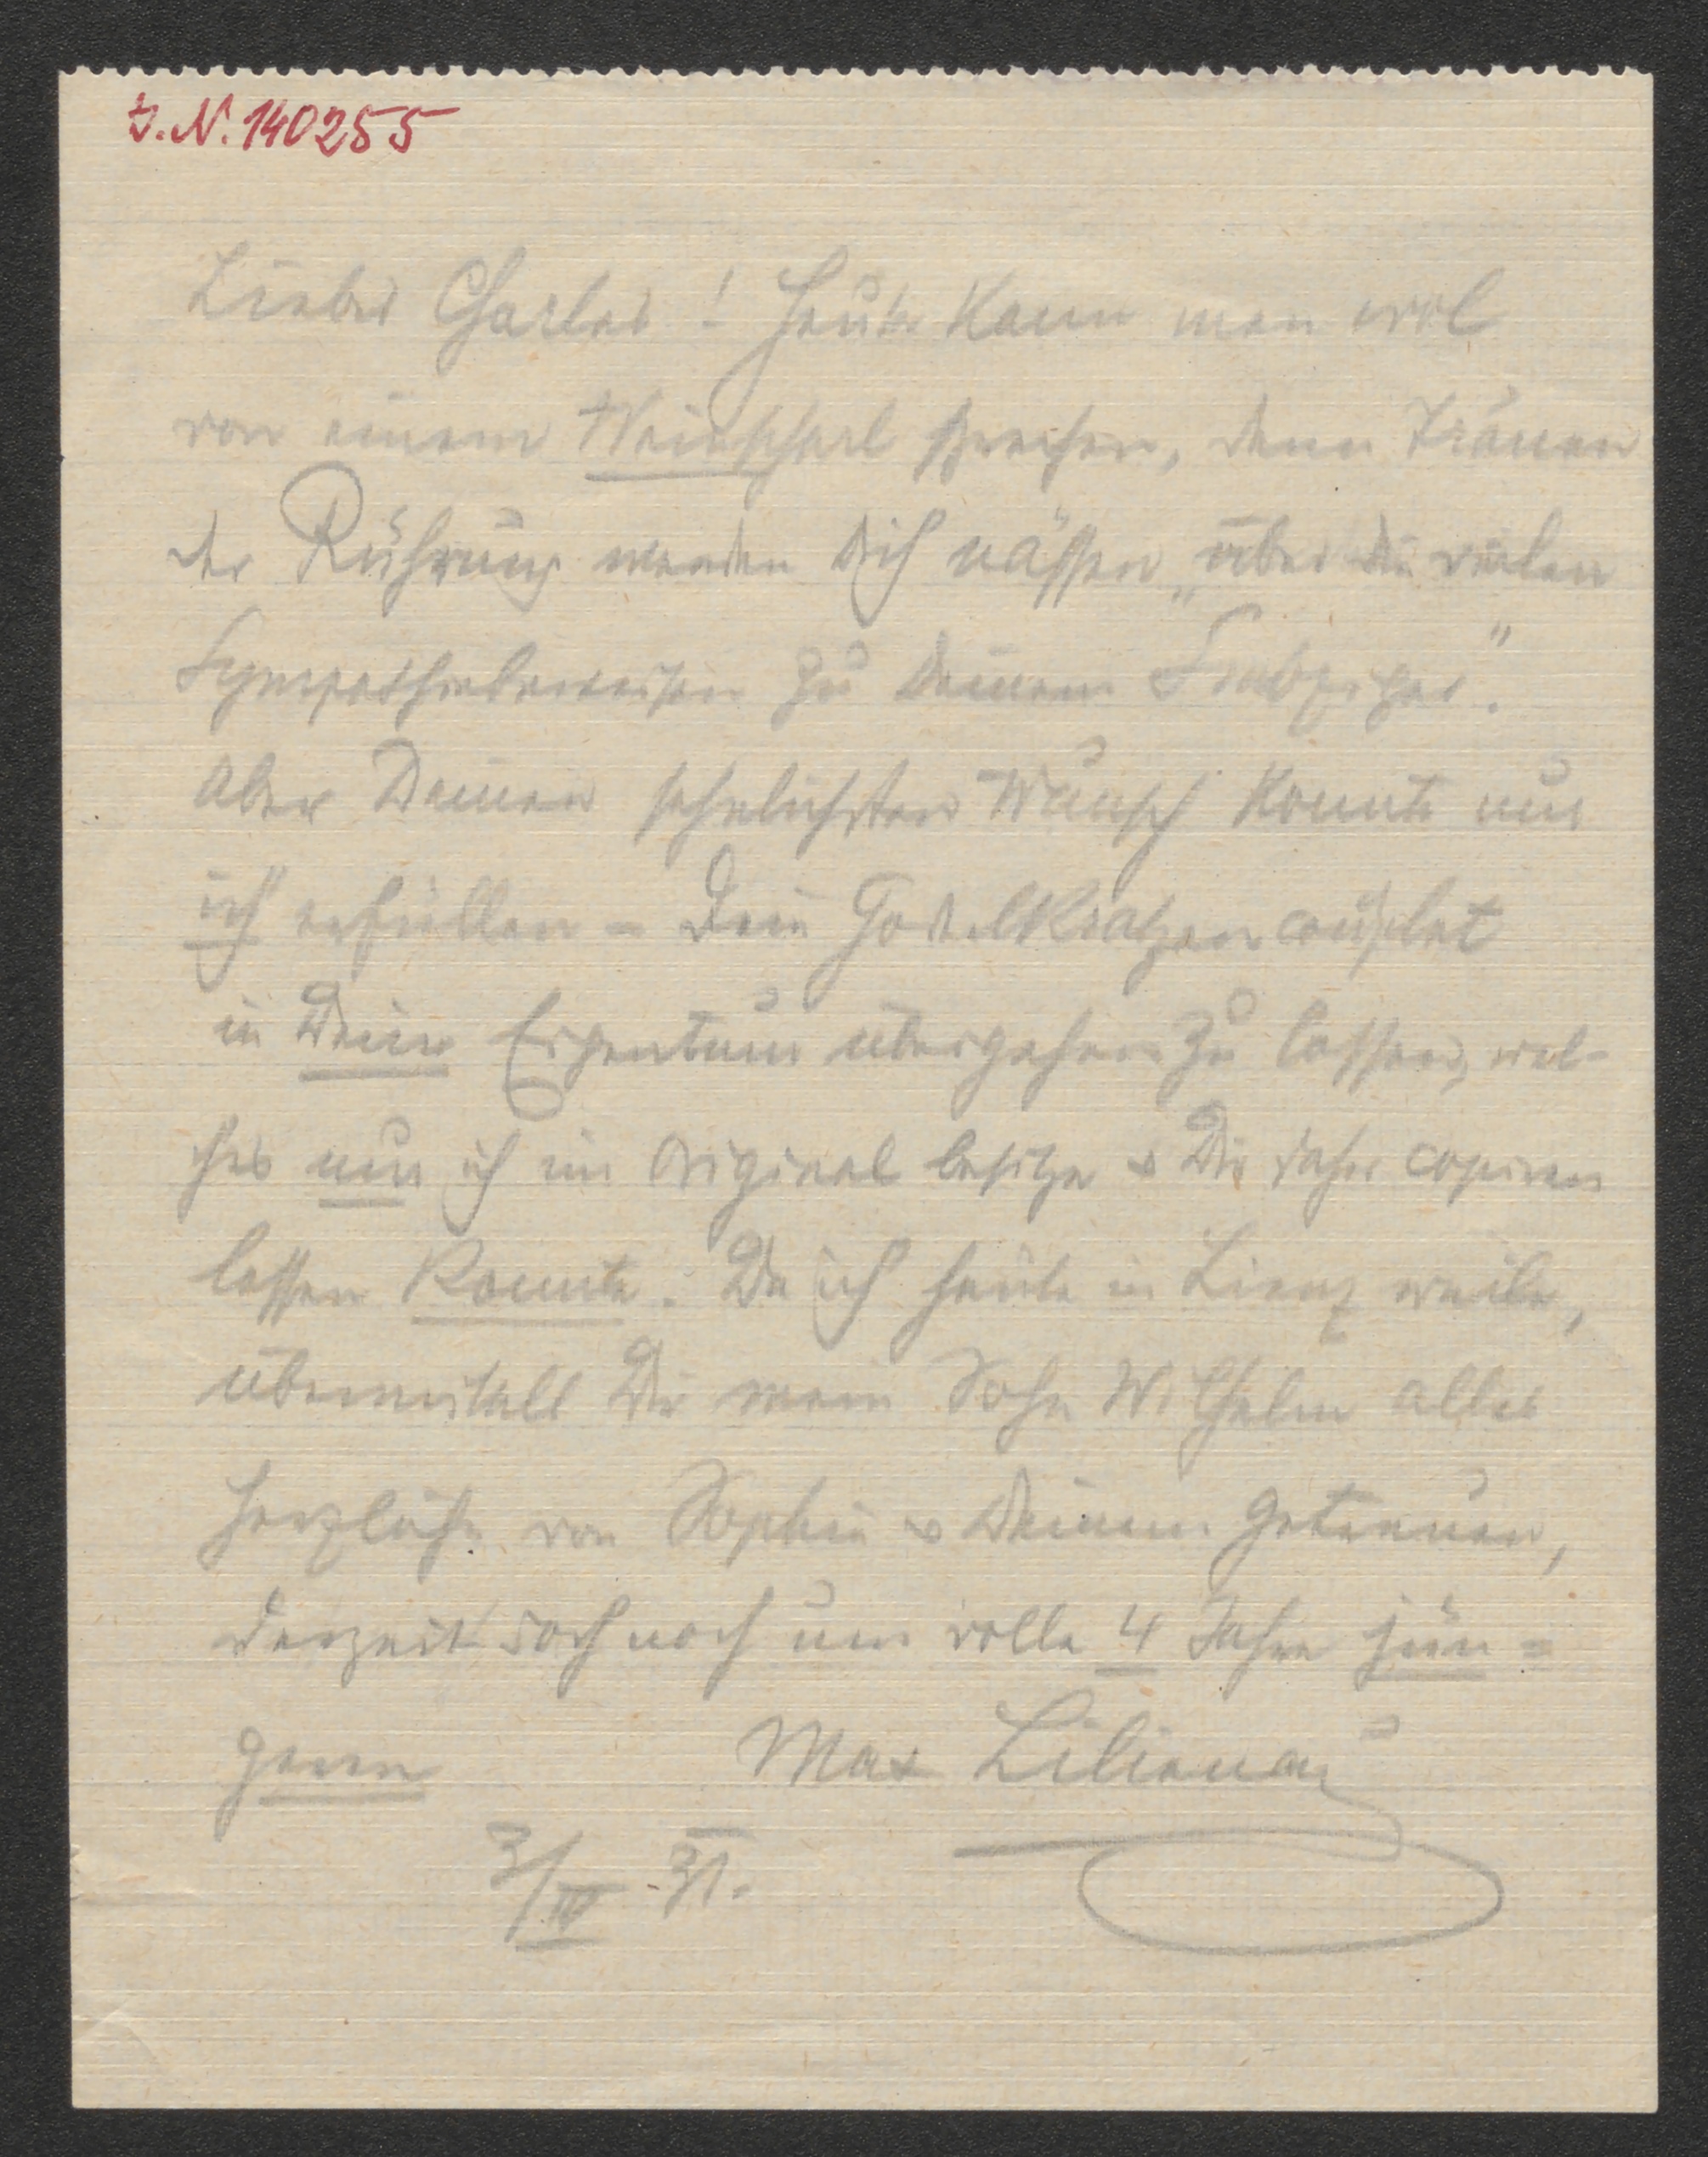 J.N. 140255
Lieber Charles! Heute kann man wol
von einem Weinscharl sprechen, denn Tränen
der Rührung werden Dich nässen über die vielen
Sympathiebeweisen zu Deinem „Siebziger".
Aber Deinen sehnlichsten Wunsch konnte nur
ich erfüllen – Dein couplet
in Dein Eigentum übergehen zu lassen, wel-
ches nur ich im Original besitze & Dir daher copiren
lassen konnte. Da ich heute in Lienz weile,
übermittelt Dir mein Sohn Wilhelm alles
Herzliche von Sophie & Deinem getreuen,
derzeit doch noch um volle 4 Jahre jün=
geren Max Lilienau
3/IV 31.